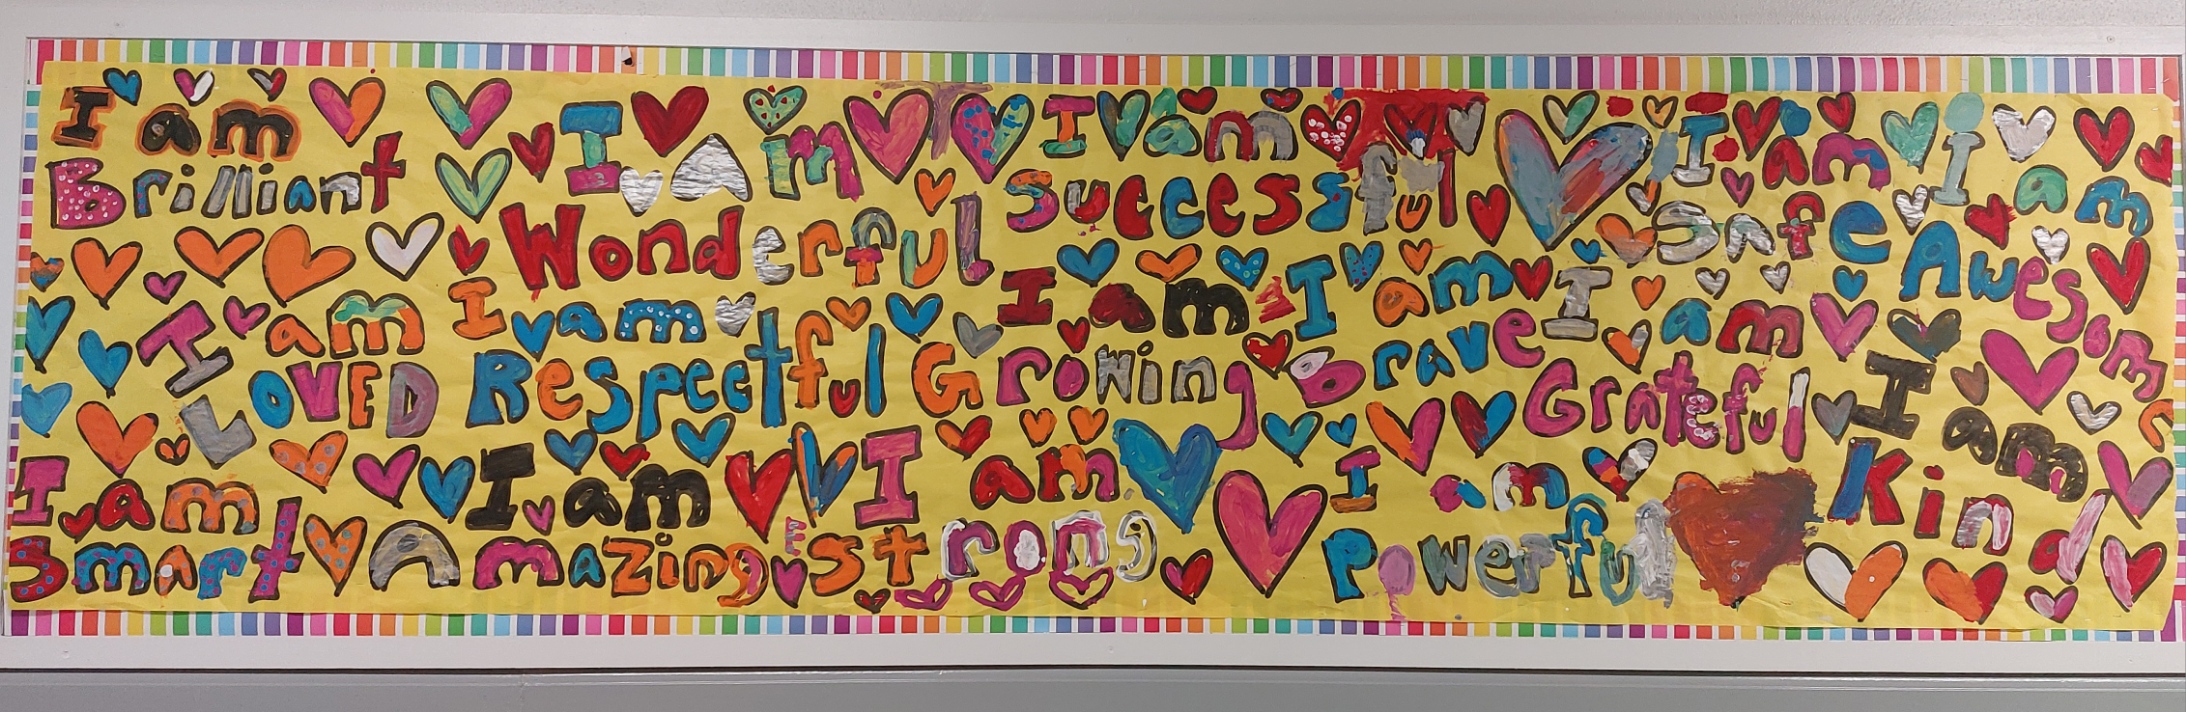 I am
Brilliant
I Am
Wonderful
I am
Successful
I am
Safe
I am
Awesome
I am
LOVED
I am
Respectful
I am
Growing
I am
Brave
I am
Grateful
I am
Kind
I am
Smart
I am
Amazing
I am
Strong
I am
Powerful